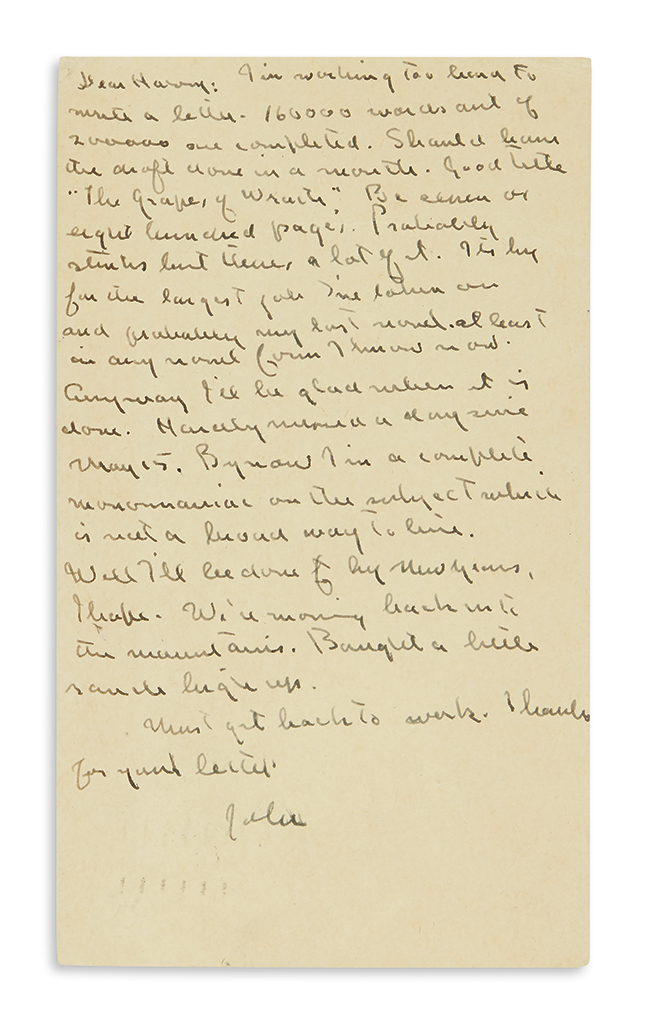 Dear Harvey: I'm working too hard to
write a letter. 160000 words out of
200000 are completed. Should have
the draft done in a month. Good title
"The Grapes of Wrath" Be seven or
eight hundred pages. Probably
stinks but there's a lot of it. Its by
far the largest job I've taken on
and probably my last novel. at least
in any novel form I know now.
Anyway I'll be glad when it is
done. Hardly missed a day since
May 15. By now I'm a complete
monomaniac on the subject which
is not a broad way to live.
Well I'll be done by New Years,
I hope. We're moving back into
the mountains. Bought a little
ranch high up.
Must get back to work. Thanks
for your letter.
John